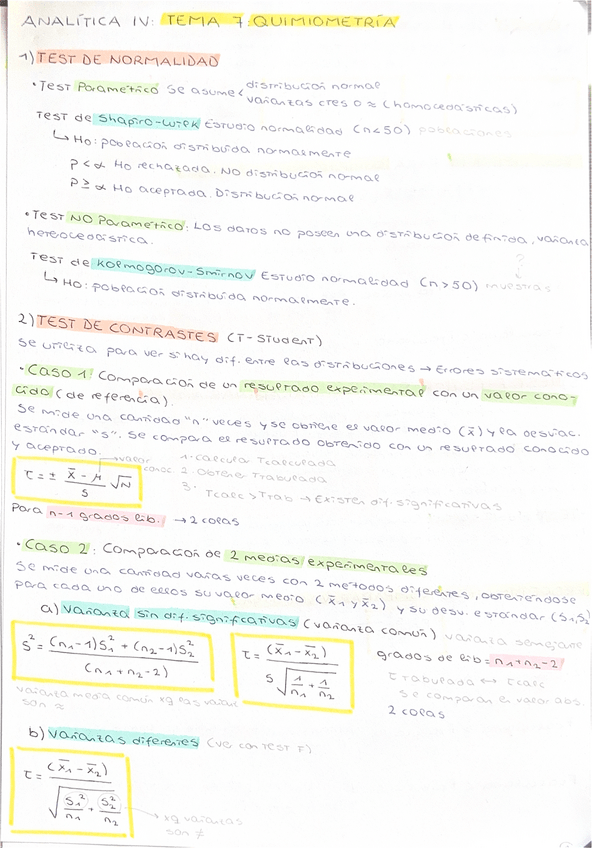 ANALÍTICA IV: TEMA 7: QUIMIOMETRÍA
1) TEST DE NORMALIDAD
• Test Paramétrico Se asume < distribución normal
varianzas ctes o ≈ (homocedásticas)
Test de Shapiro-Wilk Estudio normalidad (n<50) poblaciones
↳ Ho: población distribuida normalmente
P < α Ho rechazada. NO distribución normal
P ≥ α Ho aceptada. Distribución normal
• Test NO Paramétrico: Los datos no poseen una distribución definida, varianza
heterocedástica.
?
Test de Kolmogorov-Smirnov Estudio normalidad (n>50) muestras
↳ Ho: población distribuida normalmente.
2) TEST DE CONTRASTES (T-Student)
Se utiliza para ver si hay dif. entre las distribuciones → Errores sistemáticos
• Caso 1: Comparación de un resultado experimental con un valor cono-
cido (de referencia).
Se mide una cantidad "n" veces y se obtiene el valor medio (x̄) y la desviac.
estándar "s". Se compara el resultado obtenido con un resultado conocido
y aceptado.
valor conoc.
t = ± (x̄ - μ) / s √N
1. Calcular Tcalculada
2. Obtener Ttabulada
3. Tcalc > Ttab → Existen dif. significativas
Para n-1 grados lib. → 2 colas
• Caso 2: Comparación de 2 medias experimentales
Se mide una cantidad varias veces con 2 métodos diferentes, obteniéndose
para cada uno de ellos su valor medio (x̄1 y x̄2) y su desv. estándar (S1, S2)
a) Varianza sin dif. significativas (varianza común) varianza semejante
S² = ((n1-1)S1² + (n2-1)S2²) / (n1+n2-2)
t = (x̄1 - x̄2) / (S √(1/n1 + 1/n2))
grados de lib = n1+n2-2
Ttabulada ↔ Tcalc
Se comparan en valor abs.
2 colas
varianza media común xq las varianz
son ≈
b) Varianzas diferentes (ve con test F)
t = (x̄1 - x̄2) / √(S1²/n1 + S2²/n2)
→ xq varianzas
son ≠